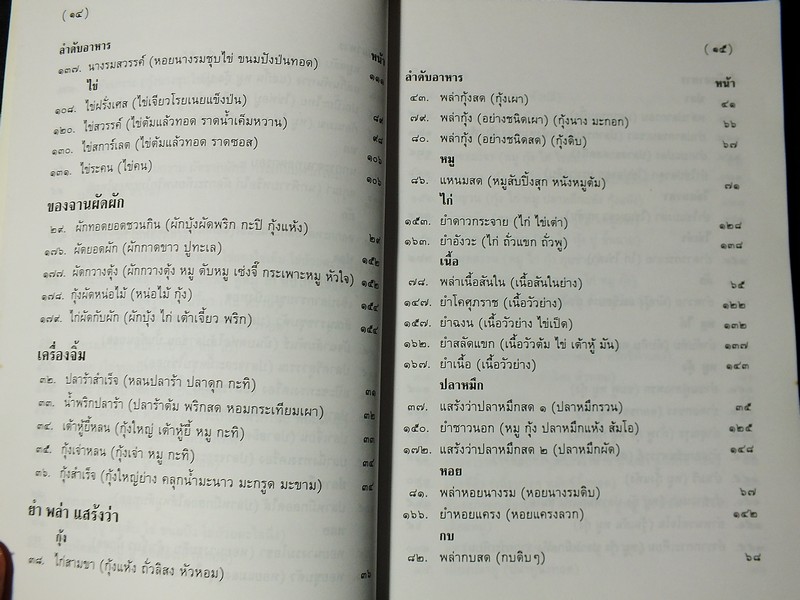 (๑๔)
ลำดับอาหาร
หน้า
๑๓๗. นางรมสวรรค์ (หอยนางรมชุบไข่ ขนมปังป่นทอด) ๑๑๑
ไข่
๑๐๘. ไข่ฝรั่งเศส (ไข่เจียวโรยเนยแข็งป่น) ๘๙
๑๒๐. ไข่สวรรค์ (ไข่ต้มแล้วทอด ราดน้ำเค็มหวาน) ๙๘
๑๓๐. ไข่สการ์เลต (ไข่ต้มแล้วทอด ราดซอส) ๑๐๖
๑๓๑. ไข่ระคน (ไข่คน) ๑๐๖
ของจานผัดผัก
๒๙. ผักทอดยอดชวนกิน (ผักบุ้งผัดพริก กะปิ กุ้งแห้ง) ๒๙
๑๗๖. ผัดยอดผัก (ผักกาดขาว ปูทะเล) ๑๕๒
๑๗๗. ผัดกวางตุ้ง (ผักกวางตุ้ง หมู ตับหมู เซ่งจี๊ กระเพาะหมู หัวใจ) ๑๕๒
๑๗๘. กุ้งผัดหน่อไม้ (หน่อไม้ กุ้ง) ๑๕๔
๑๗๙. ไก่ผัดกับผัก (ผักบุ้ง ไก่ เต้าเจี้ยว พริก) ๑๕๔
เครื่องจิ้ม
๓๒. ปลาร้าสำเร็จ (หลนปลาร้า ปลาดุก กะทิ) ๓๑
๓๓. น้ำพริกปลาร้า (ปลาร้าต้ม พริกสด หอมกระเทียมเผา) ๓๒
๓๔. เต้าหู้ยี้หลน (กุ้งใหญ่ เต้าหู้ยี้ หมู กะทิ) ๓๓
๓๕. กุ้งเจ่าหลน (กุ้งเจ่า หมู กะทิ) ๓๔
๓๖. กุ้งสำเร็จ (กุ้งใหญ่ย่าง คลุกน้ำมะนาว มะกรูด มะขาม) ๓๔
ยำ พล่า แสร้งว่า
กุ้ง
๓๘. ไก่สามขา (กุ้งแห้ง ถั่วลิสง หัวหอม) ๓๖
(๑๕)
ลำดับอาหาร
หน้า
๔๓. พล่ากุ้งสด (กุ้งเผา) ๔๑
๗๙. พล่ากุ้ง (อย่างชนิดเผา) (กุ้งนาง มะกอก) ๖๖
๘๐. พล่ากุ้ง (อย่างชนิดสด) (กุ้งดิบ) ๖๗
หมู
๘๖. แหนมสด (หมูสับปิ้งสุก หนังหมูต้ม) ๗๑
ไก่
๑๕๓. ยำดาวกระจาย (ไก่ ไข่เต่า) ๑๒๘
๑๖๓. ยำอังวะ (ไก่ ถั่วแขก ถั่วพู) ๑๓๘
เนื้อ
๗๘. พล่าเนื้อสันใน (เนื้อสันในย่าง) ๖๕
๑๔๗. ยำโคศุภราช (เนื้อวัวย่าง) ๑๒๒
๑๕๗. ยำฉงน (เนื้อวัวย่าง ไข่เป็ด) ๑๓๒
๑๖๒. ยำสลัดแขก (เนื้อวัวต้ม ไข่ เต้าหู้ มัน) ๑๓๗
๑๖๗. ยำเนื้อ (เนื้อวัวย่าง) ๑๔๓
ปลาหมึก
๓๗. แสร้งว่าปลาหมึกสด ๑ (ปลาหมึกรวน) ๓๕
๑๕๐. ยำชาวนอก (หมู กุ้ง ปลาหมึกแห้ง ส้มโอ) ๑๒๕
๑๗๒. แสร้งว่าปลาหมึกสด ๒ (ปลาหมึกผัด) ๑๔๘
หอย
๘๑. พล่าหอยนางรม (หอยนางรมดิบ) ๖๗
๑๖๖. ยำหอยแครง (หอยแครงลวก) ๑๔๒
กบ
๘๒. พล่ากบสด (กบดิบๆ) ๖๘